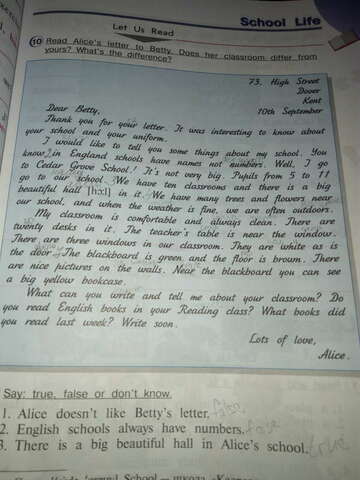 School Life
Let Us Read
10 Read Alice's letter to Betty. Does her classroom differ from
yours? What's the difference?
73, High Street
Dover
Kent
10th September
Dear Betty,
Thank you for your letter. It was interesting to know about
your school and your uniform.
I would like to tell you some things about my school. You
know, in England schools have names not numbers. Well, I go
to Cedar Grove School! It's not very big. Pupils from 5 to 11
go to our school. We have ten classrooms and there is a big
beautiful hall [hɔ:l] in it. We have many trees and flowers near
our school, and when the weather is fine, we are often outdoors.
My classroom is comfortable and always clean. There are
twenty desks in it. The teacher's table is near the window.
There are three windows in our classroom. They are white as is
the door. The blackboard is green and the floor is brown. There
are nice pictures on the walls. Near the blackboard you can see
a big yellow bookcase.
What can you write and tell me about your classroom? Do
you read English books in your Reading class? What books did
you read last week? Write soon.
Lots of love,
Alice.
Say: true, false or don't know.
1. Alice doesn't like Betty's letter. false
2. English schools always have numbers. false
3. There is a big beautiful hall in Alice's school. true
School — школа